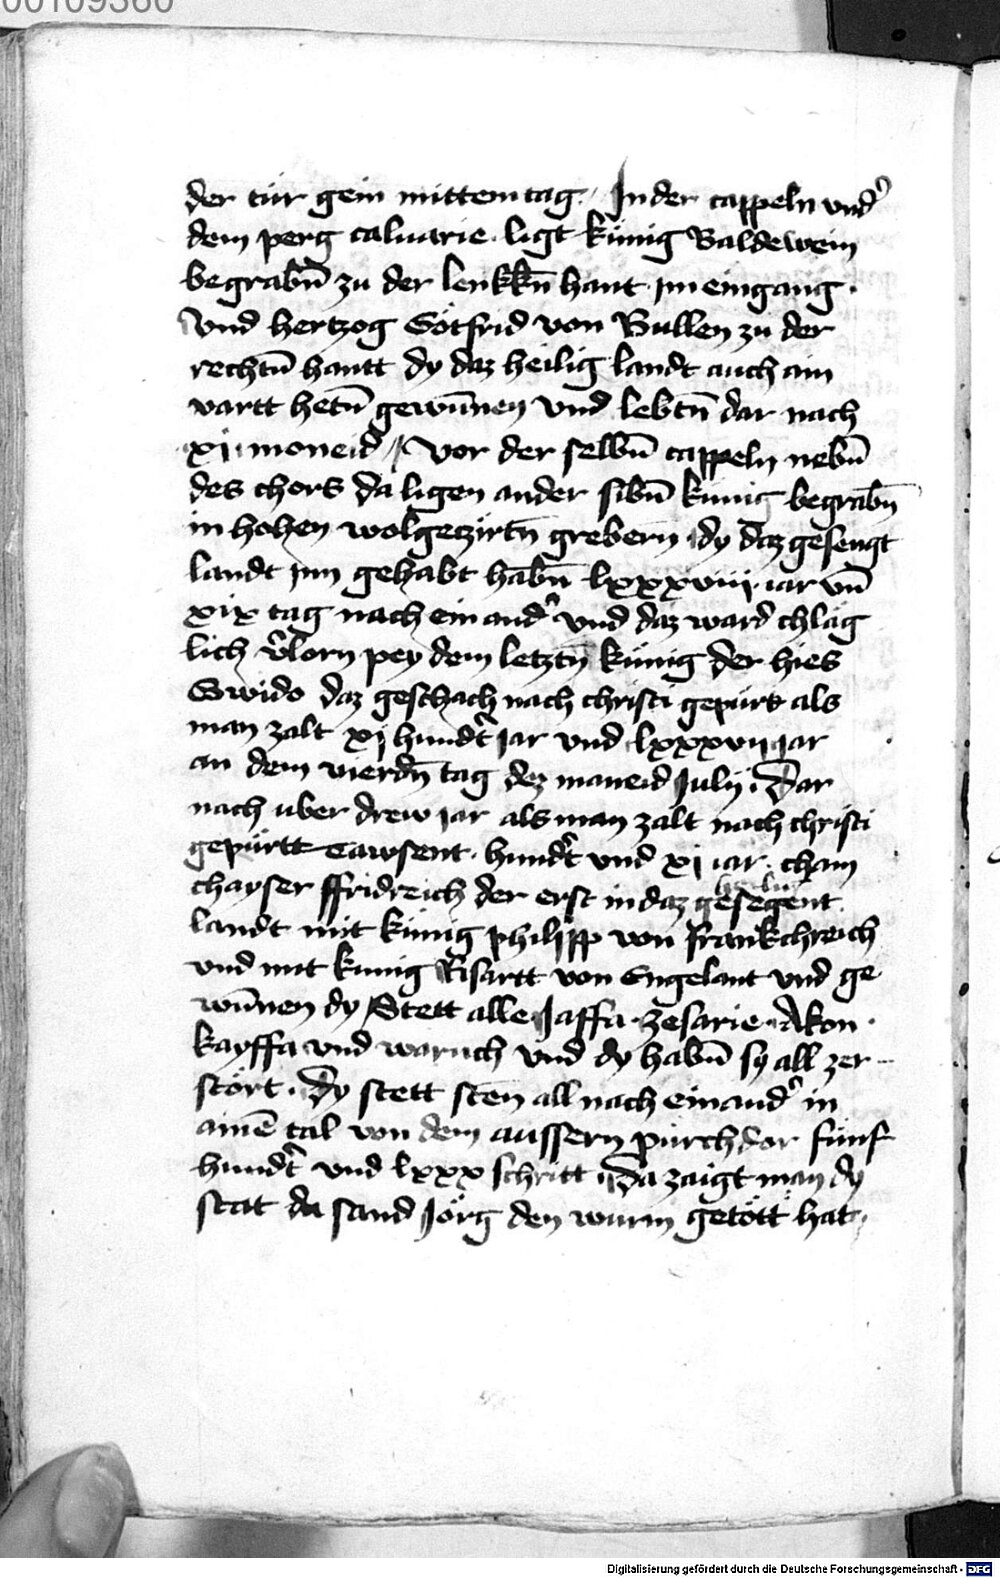 00109360
der tür gein mittemtag. In der cappeln vnd᾽
dem perg caluarie. ligt künig Baldewein
begrabn̄ zu der lenkkn̄ hant im eingang.
Vnd hertzog Götfrid von Bullen zu der
rechtn̄ hantt dy daz heilig landt auch ain
vartt hetn̄ gewūnen vnd lebtn̄ dar nach
xj moneid / Vor der selbn̄ cappeln nebn̄
des chors da ligen ander sibn̄ künig begrabn̄
in hohen wolgeczirtn̄ grebern̄ dy daz gesengt
landt inn gehabt habn̄ lxxxviij iar vn̄
xix tag nach einand᾽ vnd daz ward chläg
lich v᾽lorn pey dem letztn̄ künig der hies
Gwido daz geschach nach christi gepürt als
man zalt xj hund᾽t jar vnd lxxxvij jar
an dem vierdn̄ tag dez maneid Julij. Dar
nach uber drew jar als man zalt nach christi
gepürtt tawsent. hund᾽t vnd xj iar. cham
chayser ffridreich der erst in daz gesegent
landt mit künig philipp von frankchreich
vnd mit kunig Risartt von Engelant vnd ge
wūnen dy Stett alle Jaffa. zesarie. Akon.
kayffa vnd waruch vnd dy habn̄ sy all zer
stört. Dy stett sten all nach einand᾽ in
ainē tal von dem aussern pürchdor fünf
hund᾽t vnd lxxx schritt Da zaigt man dy
stat da sand Jörg den wurm getött hat,
Digitalisierung gefördert durch die Deutsche Forschungsgemeinschaft - DFG